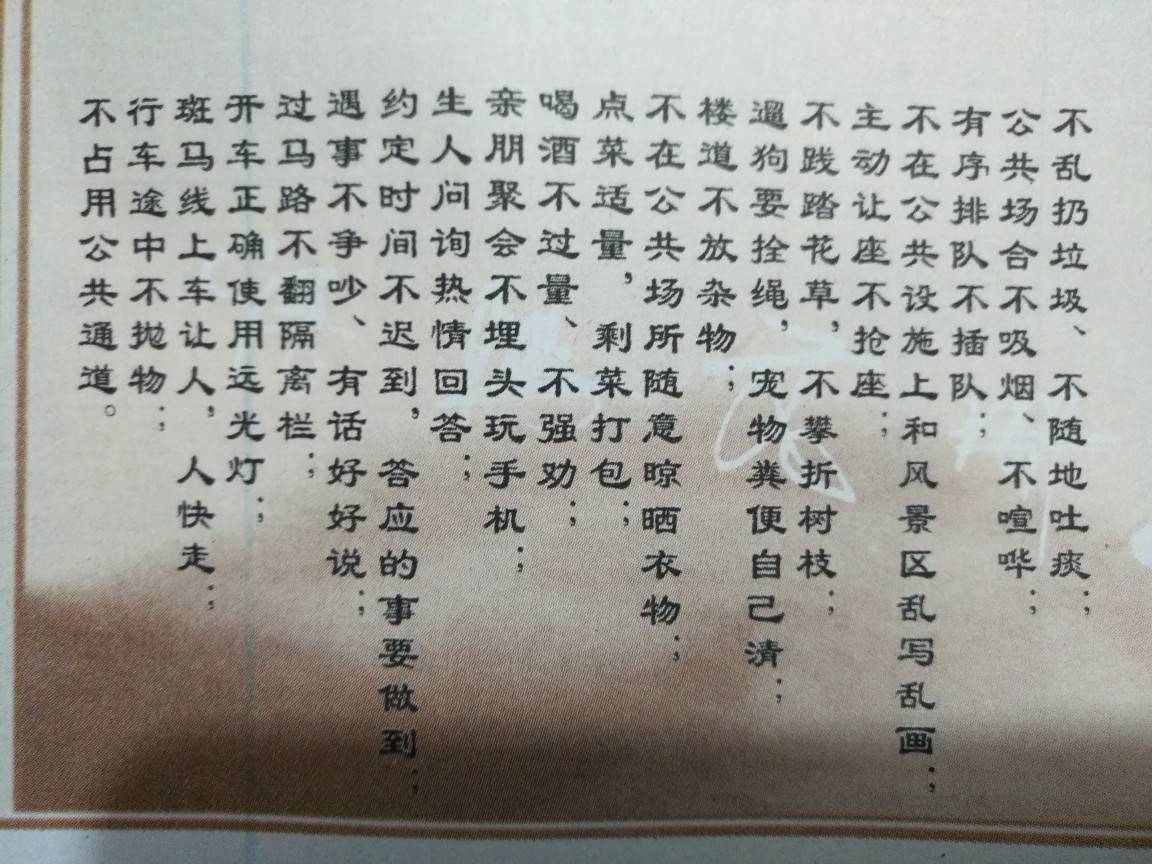 不乱扔垃圾、不随地吐痰；
公共场合不吸烟、不喧哗；
有序排队不插队；
不在公共设施上和风景区乱写乱画；
主动让座不抢座；
不践踏花草，不攀折树枝；
遛狗要拴绳，宠物粪便自己清；
楼道不放杂物；
不在公共场所随意晾晒衣物；
点菜适量，剩菜打包；
喝酒不过量、不强劝；
亲朋聚会不埋头玩手机；
生人问询热情回答；
约定时间不迟到，答应的事要做到；
遇事不争吵、有话好好说；
过马路不翻隔离栏；
开车正确使用远光灯；
斑马线上车让人，人快走；
行车途中不抛物；
不占用公共通道。